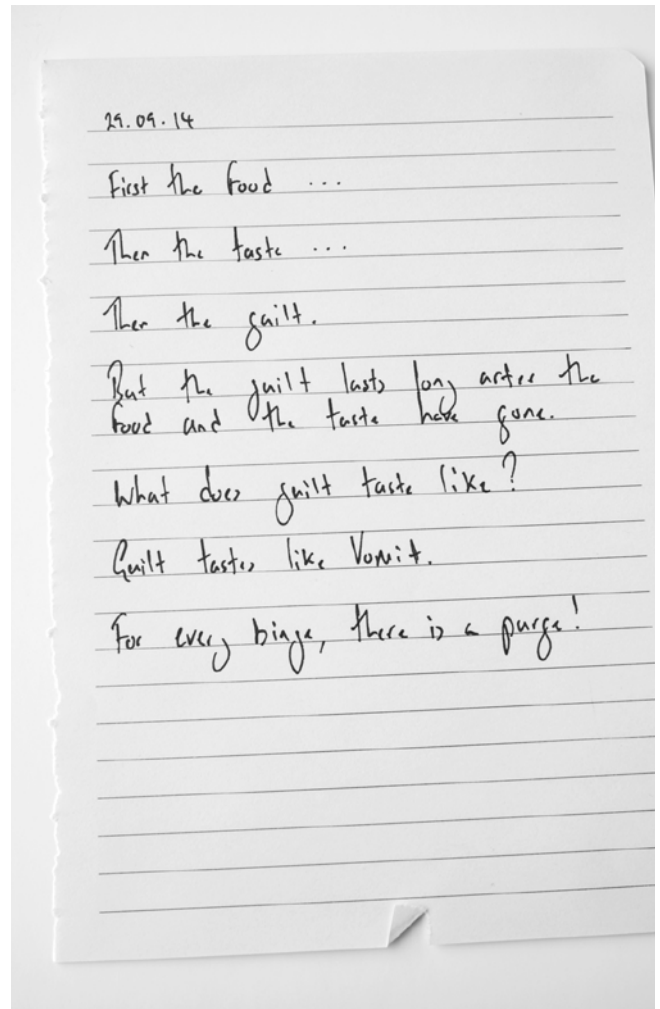 29.09.14
First the food ...
Then the taste ...
Then the guilt.
But the guilt lasts long after the
food and the taste have gone.
What does guilt taste like?
Guilt tastes like Vomit.
For every binge, there is a purge!